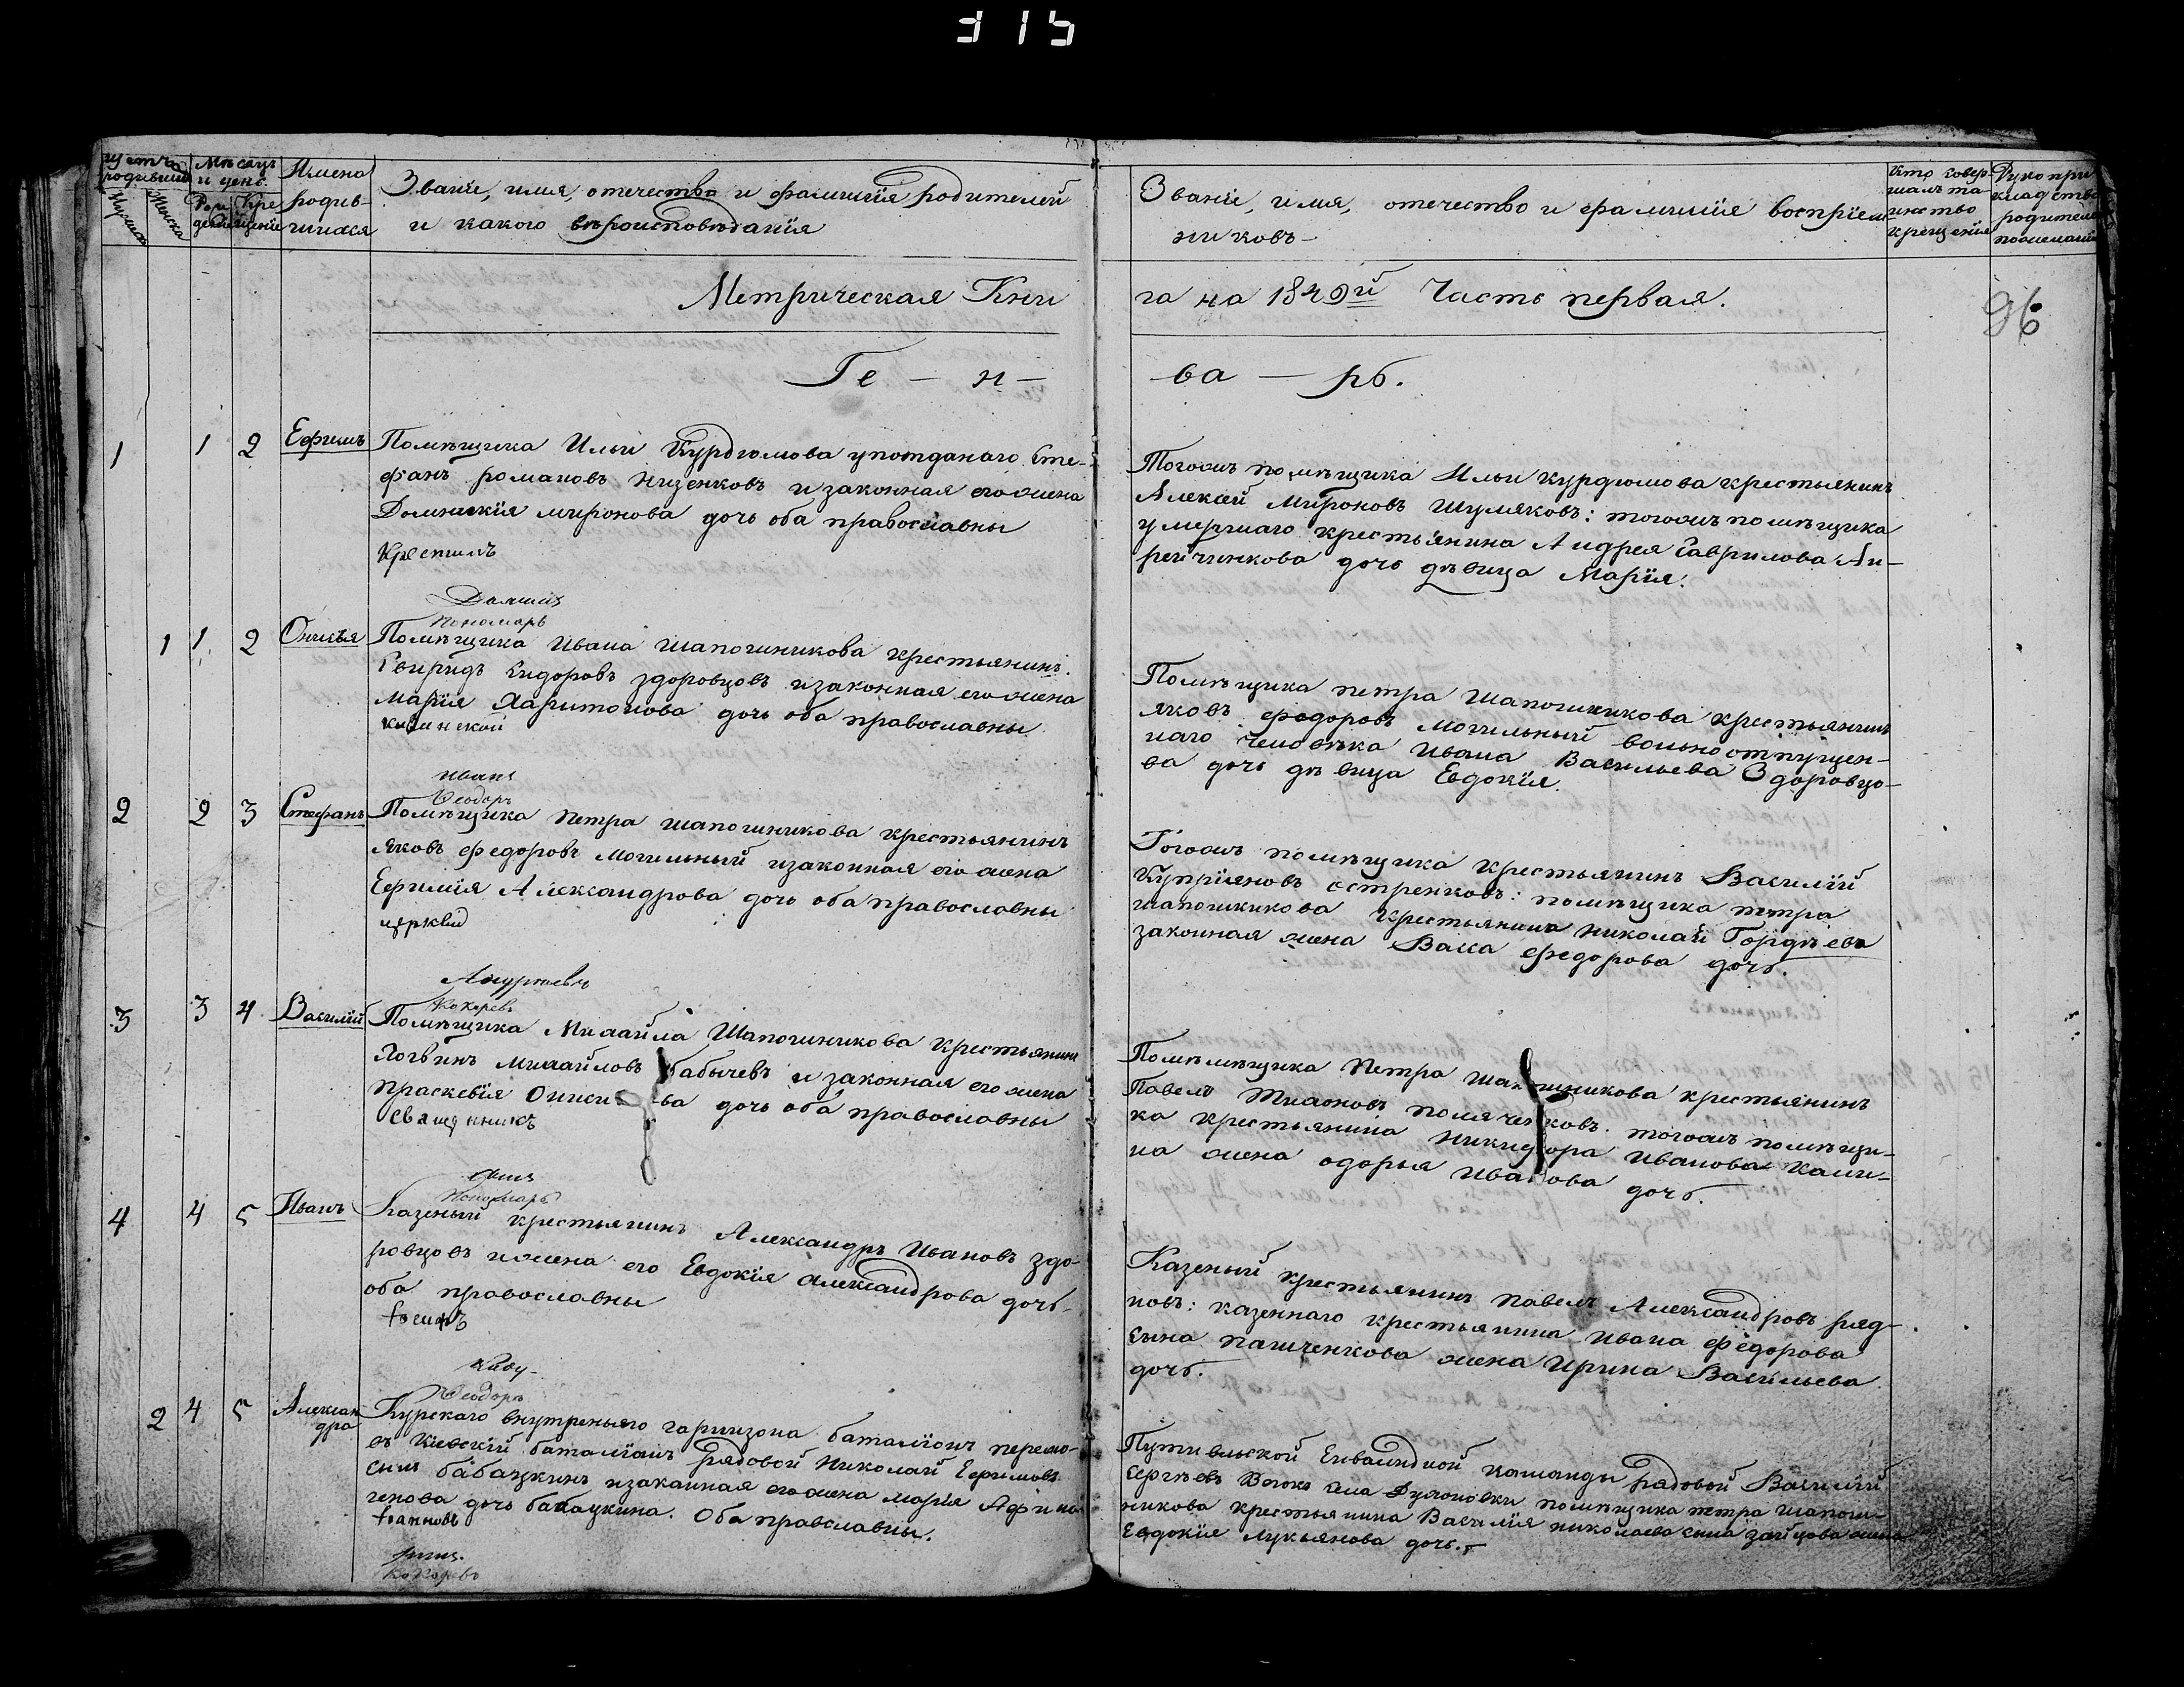 315
Счетъ родившихся
Мужеска
Женска
Мѣсяцъ и день.
Рождение
Крещение
Имена родив-
шихся
Званїе, имя, отечество и фамилїя родителей
и какого вѣроисповѣданїя
Званїе, имя, отечество и фамилїе воспрїем-
никовъ
Кто совер-
шалъ та-
инство
крещенїя
Рукопри
кладство
родителе
Метрическая Кни
га на 1849й Часть первая.
96
Ге — н —
ва — рь.
1 1 2 Ефимъ
Помѣщика Ильи Курдюмова Сте-
фанъ романовъ низенковъ и законная его жена
Домникїя миронова дочь оба православны
Крестилъ
Тогожъ помѣщика Ильи курдюмова крестьянинъ
Алексѣй Мироновъ Шумяковъ: тогожъ помѣщика
умершаго крестьянина Андрея Гаврилова Ан-
рейчинкова дочь дѣвица Марїя.
Пономарь
1 1 2
Помѣщика Ивана шапошникова крестьянинъ
Свиридъ Сидоровъ здоровцовъ и законная его жена
Марїя Харитонова дочь оба православны
Помѣщика петра Шапошникова крестьянинъ
яковъ федоровъ могильный вольноотпущен-
наго человѣка Ивана Васильева Здоровцо-
ва дочь дѣвица Евдокїя.
иванъ
Ѳеодоръ
2 2 3 Стефанъ
Помѣщика петра шапошникова крестьянинъ
яковъ федоровъ могильный и законная его жена
Ефимїя Александрова дочь оба православны
церкви
Тогожъ помѣщика крестьянинъ Василїй
Купрїяновъ остренковъ: помѣщика петра
шапошникова крестьянина николай Гордѣева
законная жена Васа федорова дочь.
Кокоревъ
3 3 4 Василїй
Помѣщика Михайла Шапошникова крестьянинъ
Логвинъ михайловъ бабычевъ и законная его жена
праскевїя дочь оба православны
Священникъ
Помѣщика Петра Шапошникова крестьянинъ
Павелъ Тихоновъ тогожъ помѣщи-
ка крестьянина Никифора Иванова Кали-
на жена одарья Иванова дочь.
Пономарь
4 4 5 Иванъ
Казеный крестьянинъ Александръ Ивановъ здо-
ровцовъ и жена его Евдокїя Александрова дочь
оба православны
Їосифъ
Казеный крестьянинъ павелъ Александровъ ряд-
новъ: казеннаго крестьянина Ивана федорова
сына пашченкова жена Ирина Васильева
дочь.
Ѳеодоръ
2 4 5 Алексан
дра
Курскаго внутреньяго гарнизона баталїонъ
въ Кїевскїй баталїонъ рядовой Николай Ефимовъ
сынъ бабачкинъ и законная его жена марїя
генова дочь бабачкина. Оба православны.
Їоанновъ
Кокоревъ
Путивльской Енвалидной команды рядовой Василїй
Сергѣевъ помѣщика петра Шапош-
никова крестьянина Василїя николаева сына зайцова жена
Евдокїя Лукьянова дочь.